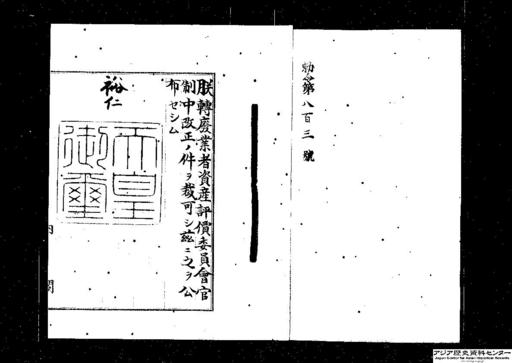 勅令第八百三號
朕轉廢業者資産評價委員會官
制中改正ノ件ヲ裁可シ茲ニ之ヲ公
布セシム
裕仁
天皇
御璽
内閣
アジア歴史資料センター
Japan Center for Asian Historical Records